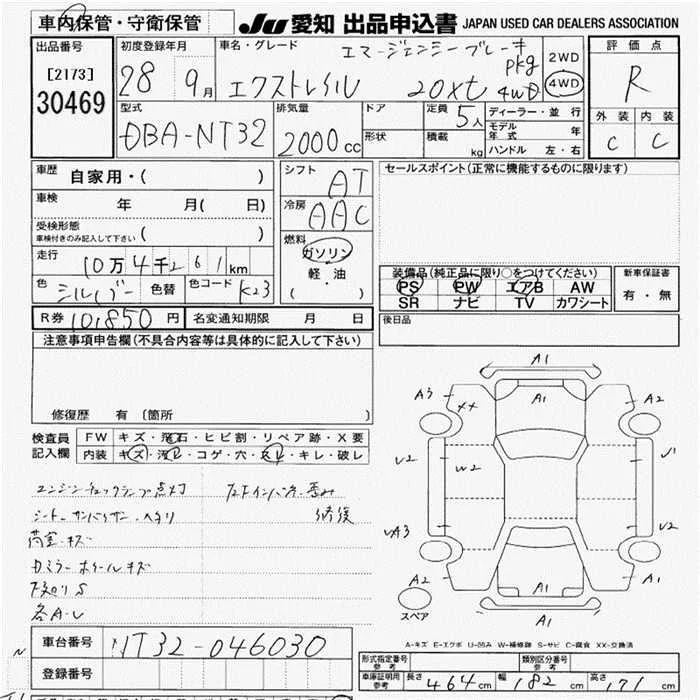 車内保管・守衛保管
JU 愛知 出品申込書 JAPAN USED CAR DEALERS ASSOCIATION
出品番号
[2173]
30469
初度登録年月
28 9月
車名・グレード
エマージェンシーブレーキ
pkg
エクストレイル 20xt 4WD
2WD
4WD
評価点
R
外装 内装
C C
型式
DBA-NT32
排気量
2000cc
ドア
形状
定員 5人
積載 kg
ディーラー・並行
モデル年式 年
ハンドル 左・右
車歴
自家用・( )
車検 年 月( 日)
受検形態
車検付きのみ記入して下さい ( )
走行
10万4千261km
色 シルバー 色替 色コード K23
シフト AT
冷房 AAC
燃料
ガソリン
軽・油
( ・ )
セールスポイント(正常に機能するものに限ります)
装備品(純正品に限り○をつけてください)
PS PW エアB AW
SR ナビ TV カワシート
新車保証書
有・無
R券 10,850円 名変通知期限 月 日
後日品
注意事項申告欄(不具合内容等は具体的に記入して下さい)
修復歴 有〔箇所 〕
検査員記入欄
FW キズ・飛石・ヒビ割・リペア跡・X要
内装 キズ・汚レ・コゲ・穴・スレ・キレ・破レ
エンジンチェックランプ点灯
シート・サンバイザー・ヘタリ 修復
荷室・キズ
ドミラーホイールキズ
下廻りS
各A-U
A1
A3 XX A1 A2
U2 W2 U1
UA3 U2
A2 A1 A1
スペア
A1
A-キズ E-エクボ U-凹み W-補修跡 S-サビ C-腐食 XX-交換済
車台番号 NT32-046030
登録番号
形式指定番号 参考
類別区分番号 参考
車庫証明用 参考 長さ 464cm 幅 182cm 高さ 171cm